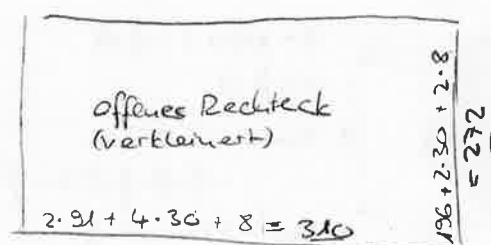 offenes Rechteck
(verkleinert)
2·91 + 4·30 + 8 = 310
196 + 2·30 + 2·8
= 272